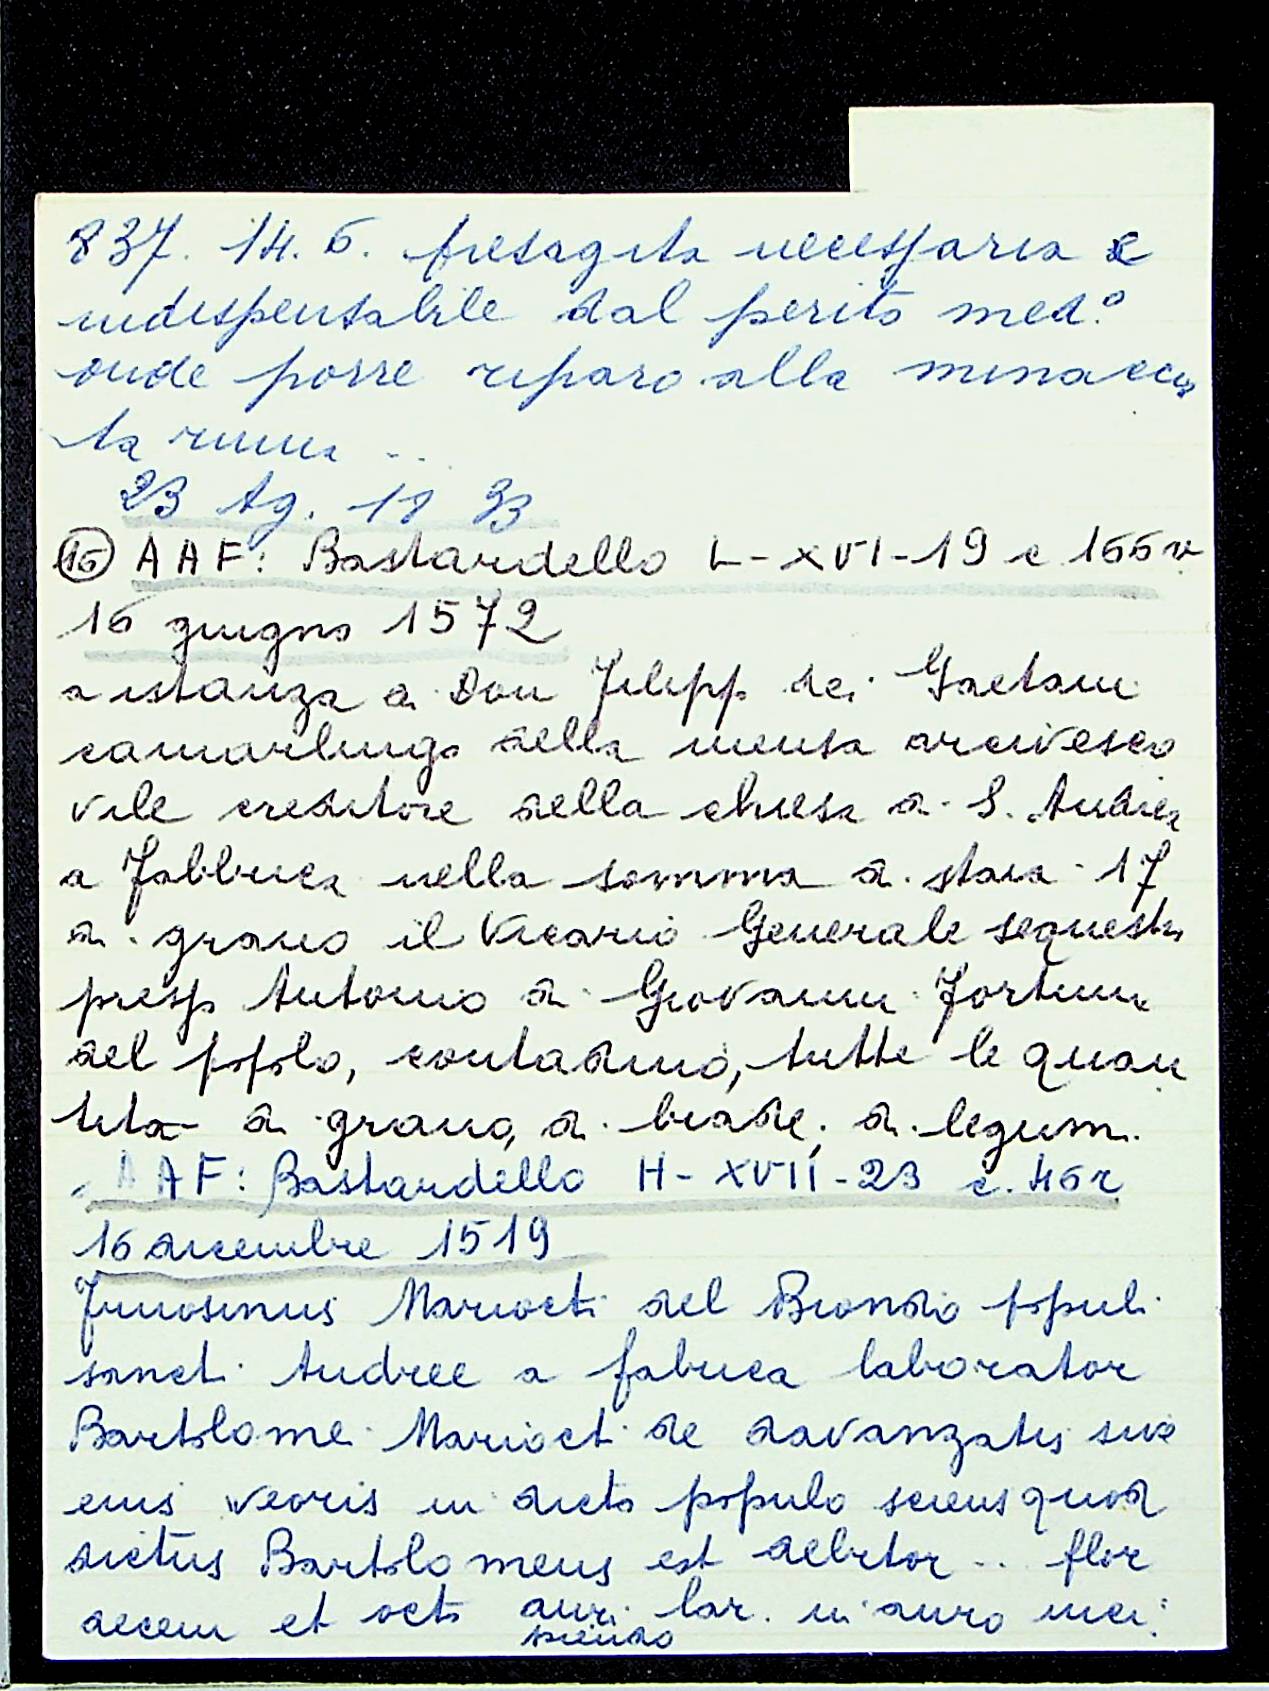 837. 14. 6. presagita necessaria e
indispensabile dal perito med.º
onde porre riparo alla minaccia
ta ruina ...
23 Ag. 18 33
(16) A A F: Bastardello L-XVI-19 c 166 v
16 giugno 1572
a istanza di Don Filipp dei Gaetani
camarlingo della mensa arcivesco
vile creditore della chiesa di S. Andrea
a Fabbrica nella somma di staia 17
di grano il Vicario Generale sequestra
presso Antonio di Giovanni Fortuni
del popolo, contadino, tutte le quan
tità di grano, di biade, di legumi.
A A F: Bastardello H-XVII-23 c. 46 r
16 dicembre 1519
Fruosinus Mariocti del Biondo populi
sancti Andree a fabrica laborator
Bartolomei Mariocti de davanzatis sive
eius in dicto populo sciens quod
dictus Bartolomeus est debitor ... flor
decem et octo auri lar. in auro